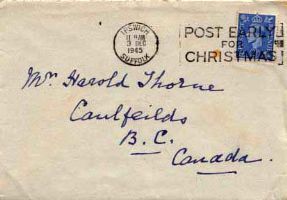 IPSWICH
11 AM
3 DEC
1945
SUFFOLK
POST EARLY
FOR
CHRISTMAS
Mr. Harold Thorne
Caulfeilds
B. C.
Canada.